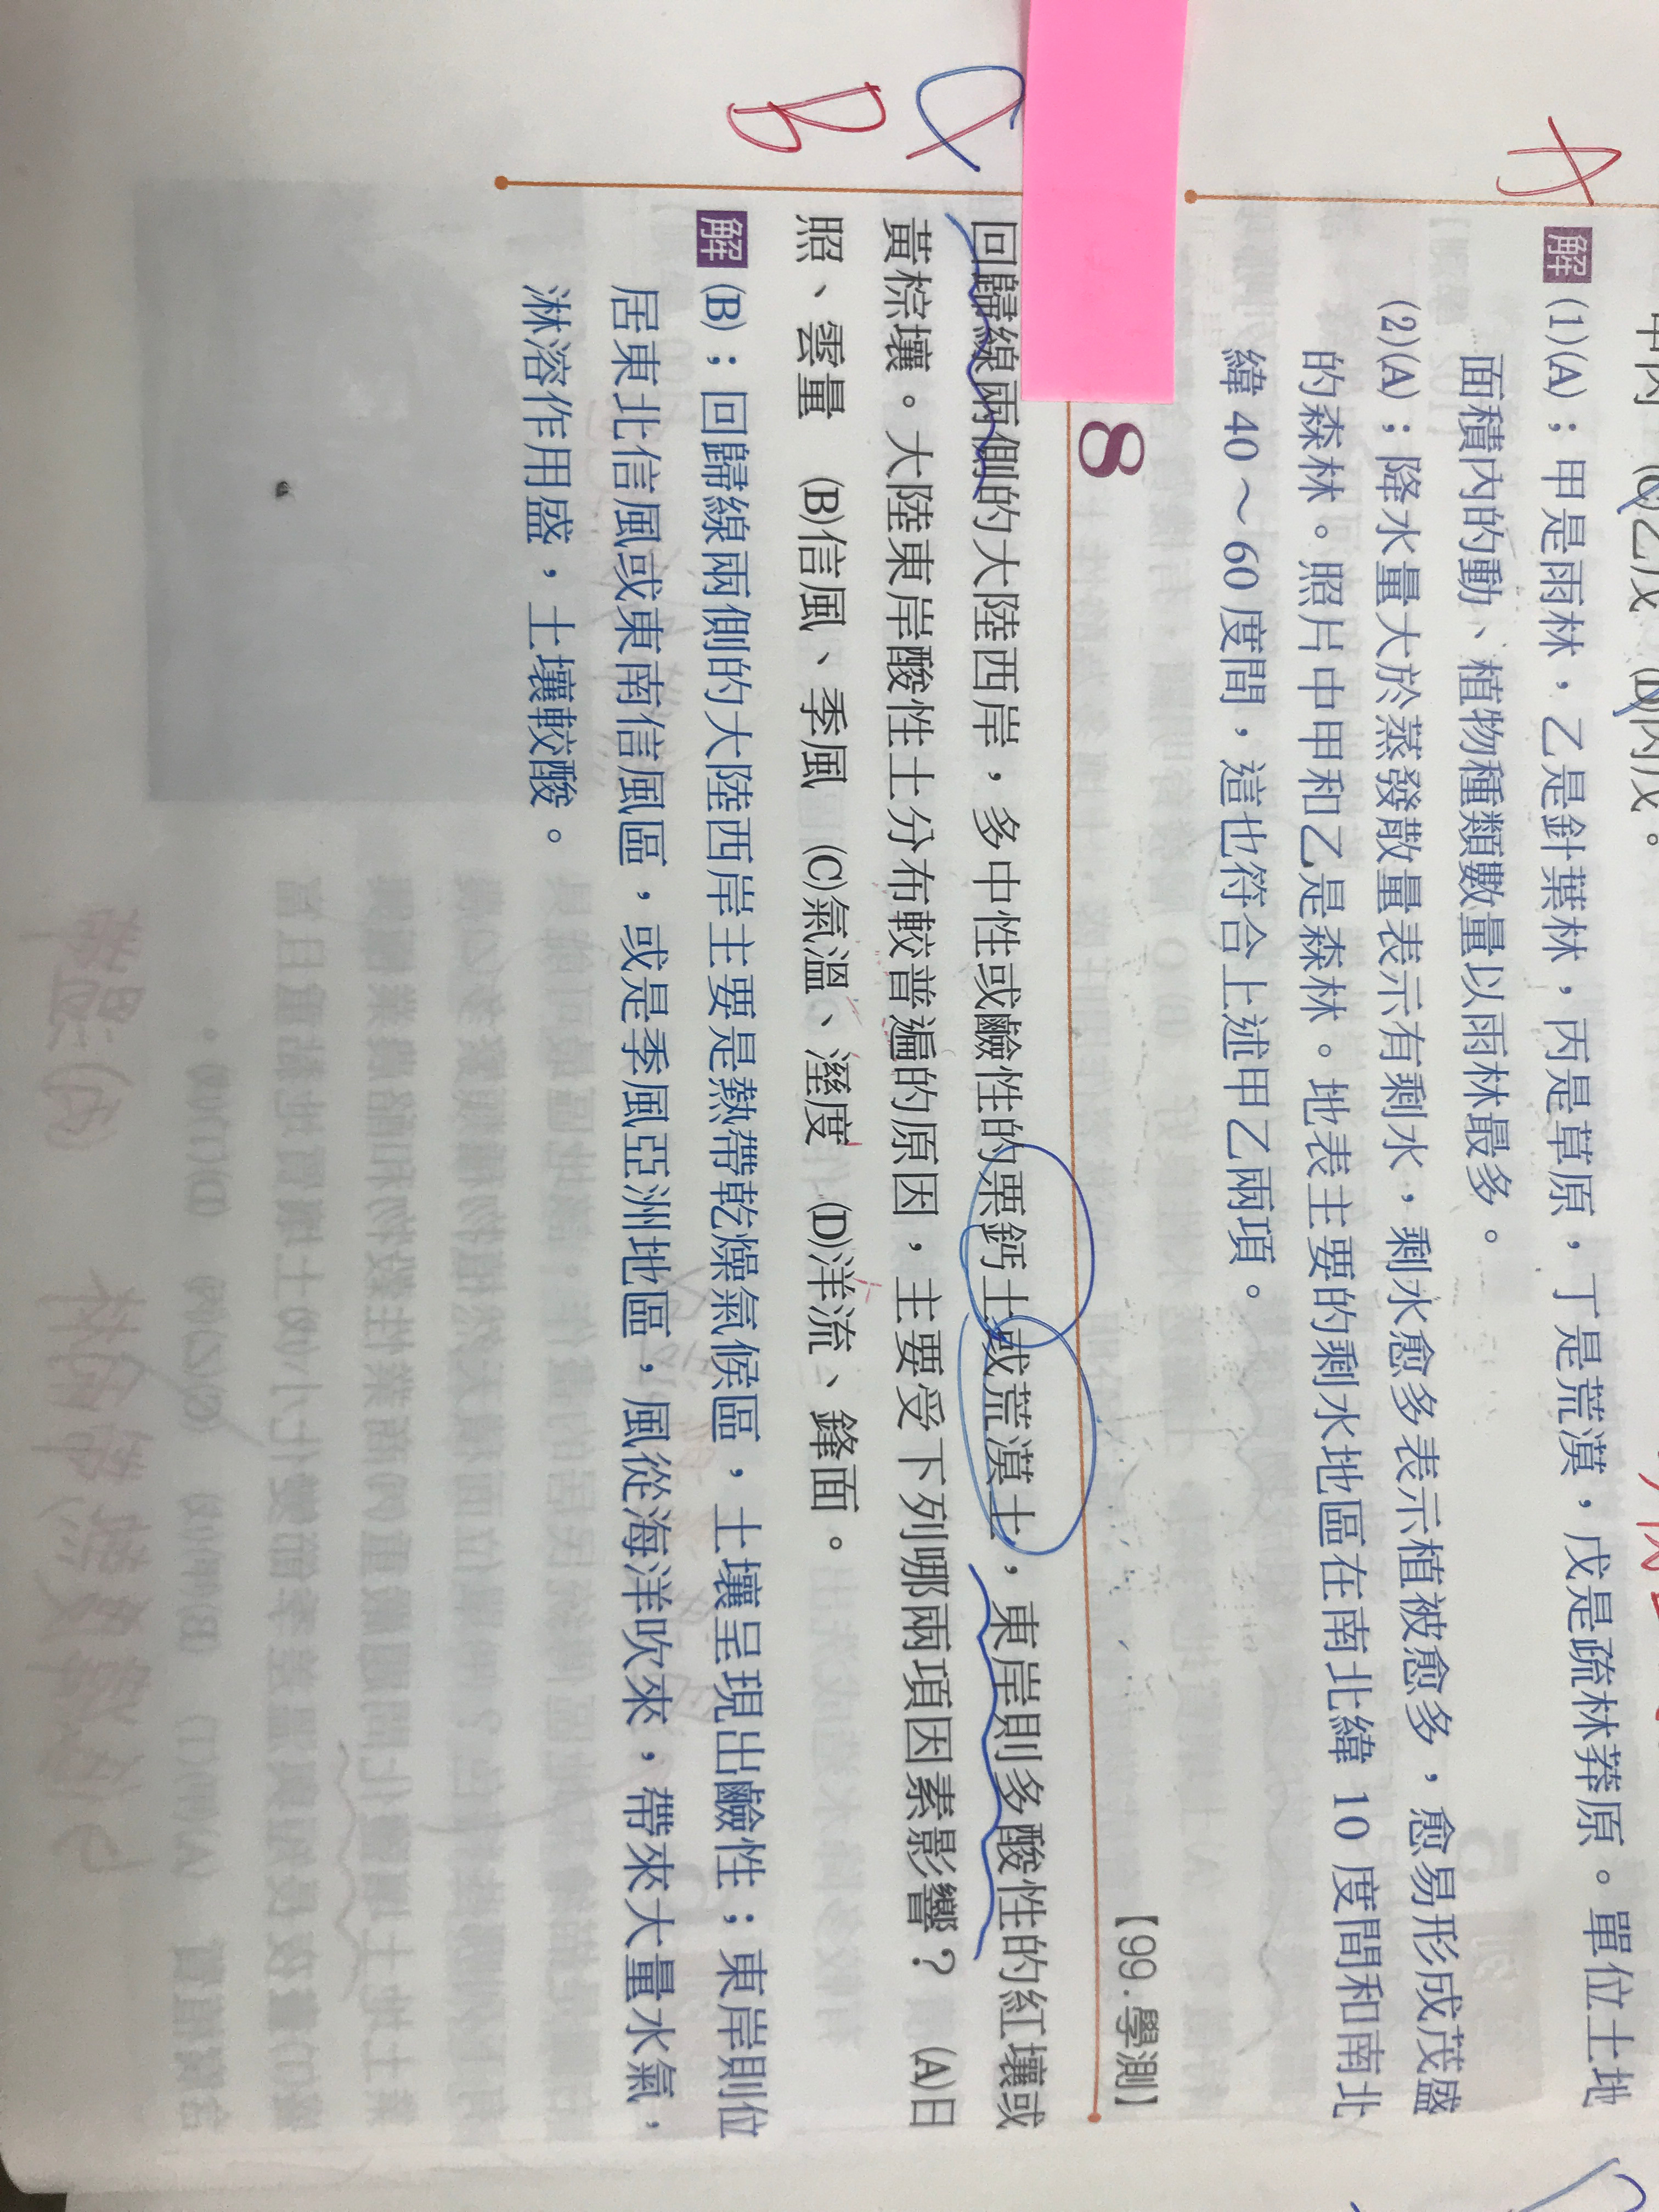 (C)乙戊 (D)丙戊。
A
解 (1)(A);甲是雨林,乙是針葉林,丙是草原,丁是荒漠,戊是疏林莽原。單位土地
面積內的動、植物種類數量以雨林最多。
(2)(A);降水量大於蒸發散量表示有剩水,剩水愈多表示植被愈多,愈易形成茂盛
的森林。照片中甲和乙是森林。地表主要的剩水地區在南北緯 10 度間和南北
緯 40～60 度間,這也符合上述甲乙兩項。
8
【99.學測】
回歸線兩側的大陸西岸,多中性或鹼性的栗鈣土或荒漠土,東岸則多酸性的紅壤或
黃棕壤。大陸東岸酸性土分布較普遍的原因,主要受下列哪兩項因素影響? (A)日
照、雲量 (B)信風、季風 (C)氣溫、溼度 (D)洋流、鋒面。
B
解 (B);回歸線兩側的大陸西岸主要是熱帶乾燥氣候區,土壤呈現出鹼性;東岸則位
居東北信風或東南信風區,或是季風亞洲地區,風從海洋吹來,帶來大量水氣,
淋溶作用盛,土壤較酸。